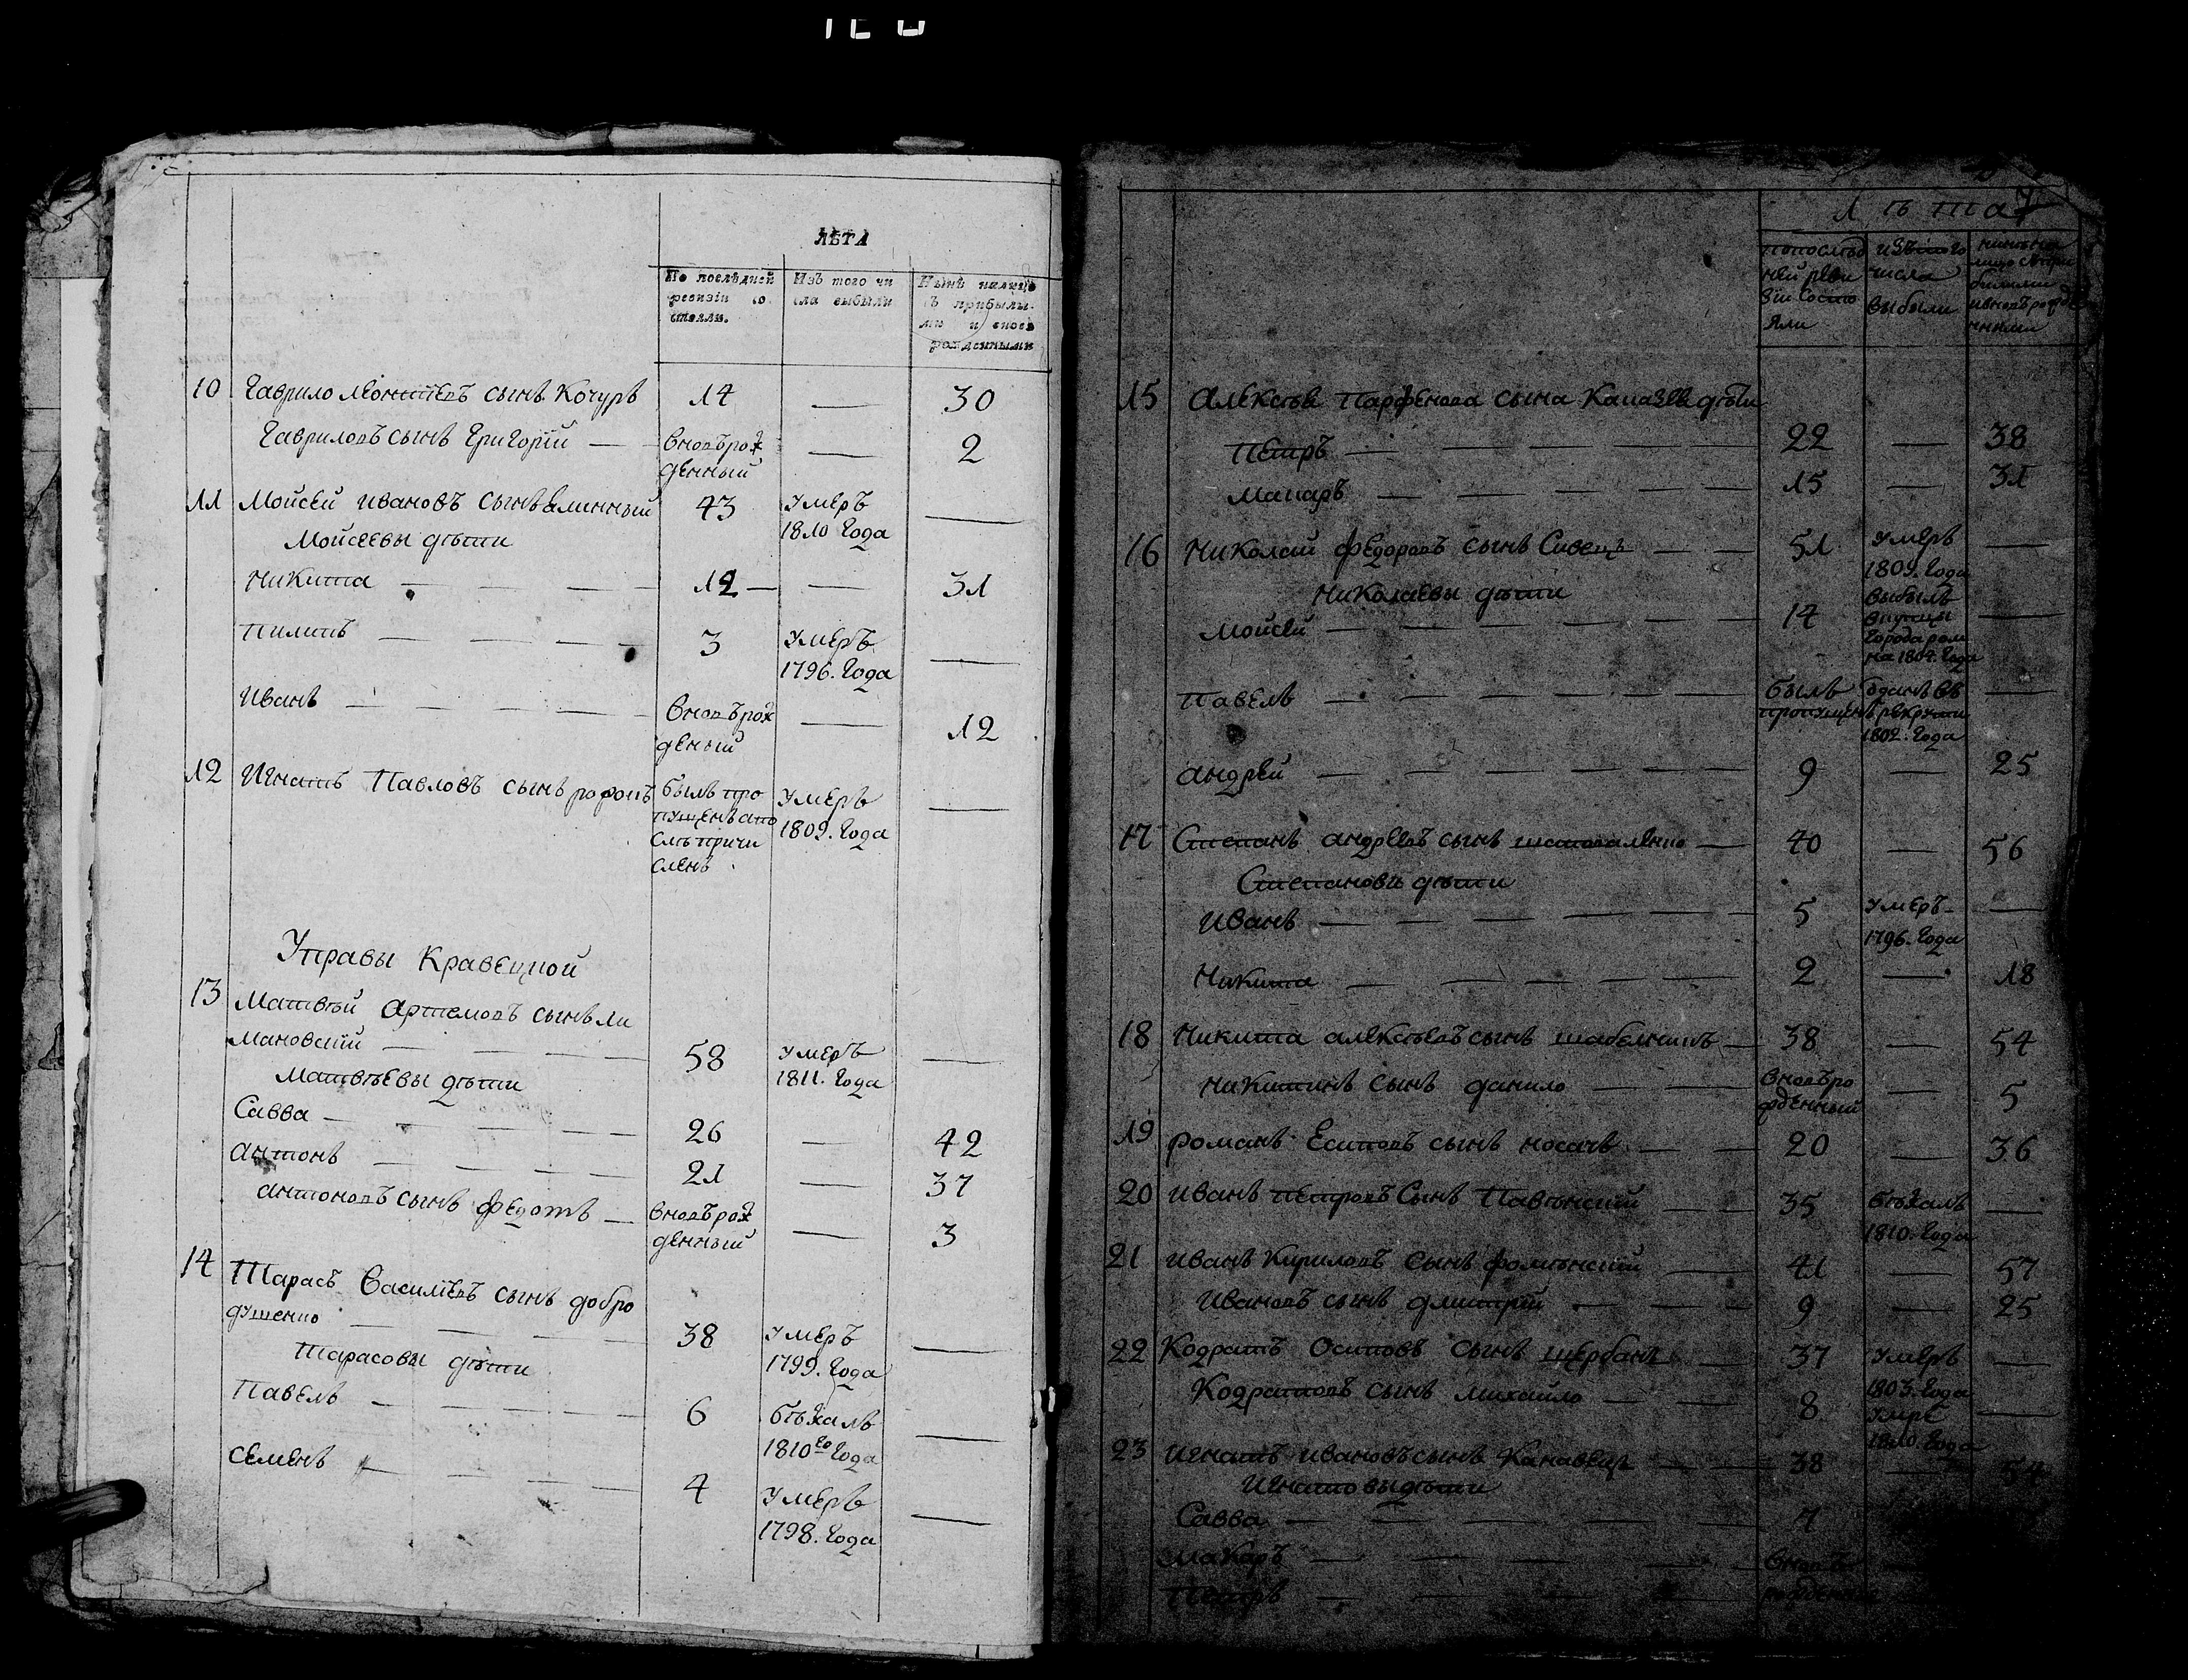 ЛѢТА
По послѣдней ревизіи со стояли.
Изъ того чи сла выбыли
Нынѣ налицо съ прибылы ми и вновь рожденными
10 Гаврило леонтіевъ сынъ Кочуръ 14 — 30
Гавриловъ сынъ Григорій — вновърож денный — 2
11 Мойсей ивановъ сынъ 43 Умеръ 1810 Года —
Мойсеевы дѣти
Никита — 12 — — 31
Пилипъ — 3 Умеръ 1796. Года —
Иванъ — вновърож деный — 12
12 Игнатъ Павловъ сынъ былъ про пущенъ апо слѣ причи сленъ Умеръ 1809. Года —
Управы Кравецкой
13 Матвѣй Артемовъ сынъ ли
мановскій — 58 Умеръ 1811. Года —
Матвѣевы дѣти
Савва — 26 — 42
антонъ — 21 — 37
антоновъ сынъ федотъ — вновърож денный — 3
14 Тарасъ Василіевъ сынъ добро
душенко — 38 Умеръ 1799. Года —
Тарасовы дѣти
Павелъ — 6 бѣжалъ 1810го Года —
семенъ — 4 Умеръ 1798. Года —
Лѣта
попослѣд ней реви зіи состо яли
изътого числа выбыли
15 Алексѣя Парфенова сына дѣти
Петръ — 22 — 38
Макаръ — 15 — 31
16 Николай федоровъ сынъ Сивецъ — 51 Умеръ 1809. Года —
Николаевы дѣти
Мойсей — 14 выбылъ вкупцы Города ром на 1809. Года —
Павелъ — былъ пропущенъ отданъ въ рекруты 1802. Года —
андрей — 9 — 25
17 Степанъ андреевъ сынъ шаповаленко — 40 — 56
Степановы дѣти
Иванъ — 5 Умеръ 1796. Года —
Никита — 2 — 18
18 Никита алексѣевъ сынъ шабельникъ — 38 — 54
никитинъ сынъ данило — вновъро жденный — 5
19 романъ Есиповъ сынъ носачъ — 20 — 36
20 иванъ петровъ Сынъ Павлѣнскій — 35 бѣжалъ 1810. Года —
21 иванъ Кириловъ Сынъ — 41 — 57
Ивановъ сынъ дмитрій — 9 — 25
22 Кодратъ Осиповъ сынъ щербакъ — 37 Умеръ 1803. Года —
Кодратовъ сынъ михайло — 8 Умре 1810. Года —
23 игнатъ ивановъ сынъ Канавецъ — 38 — 54
Игнатовы дѣти
Савва — 7
макаръ — вновъ
Петръ — рожденны